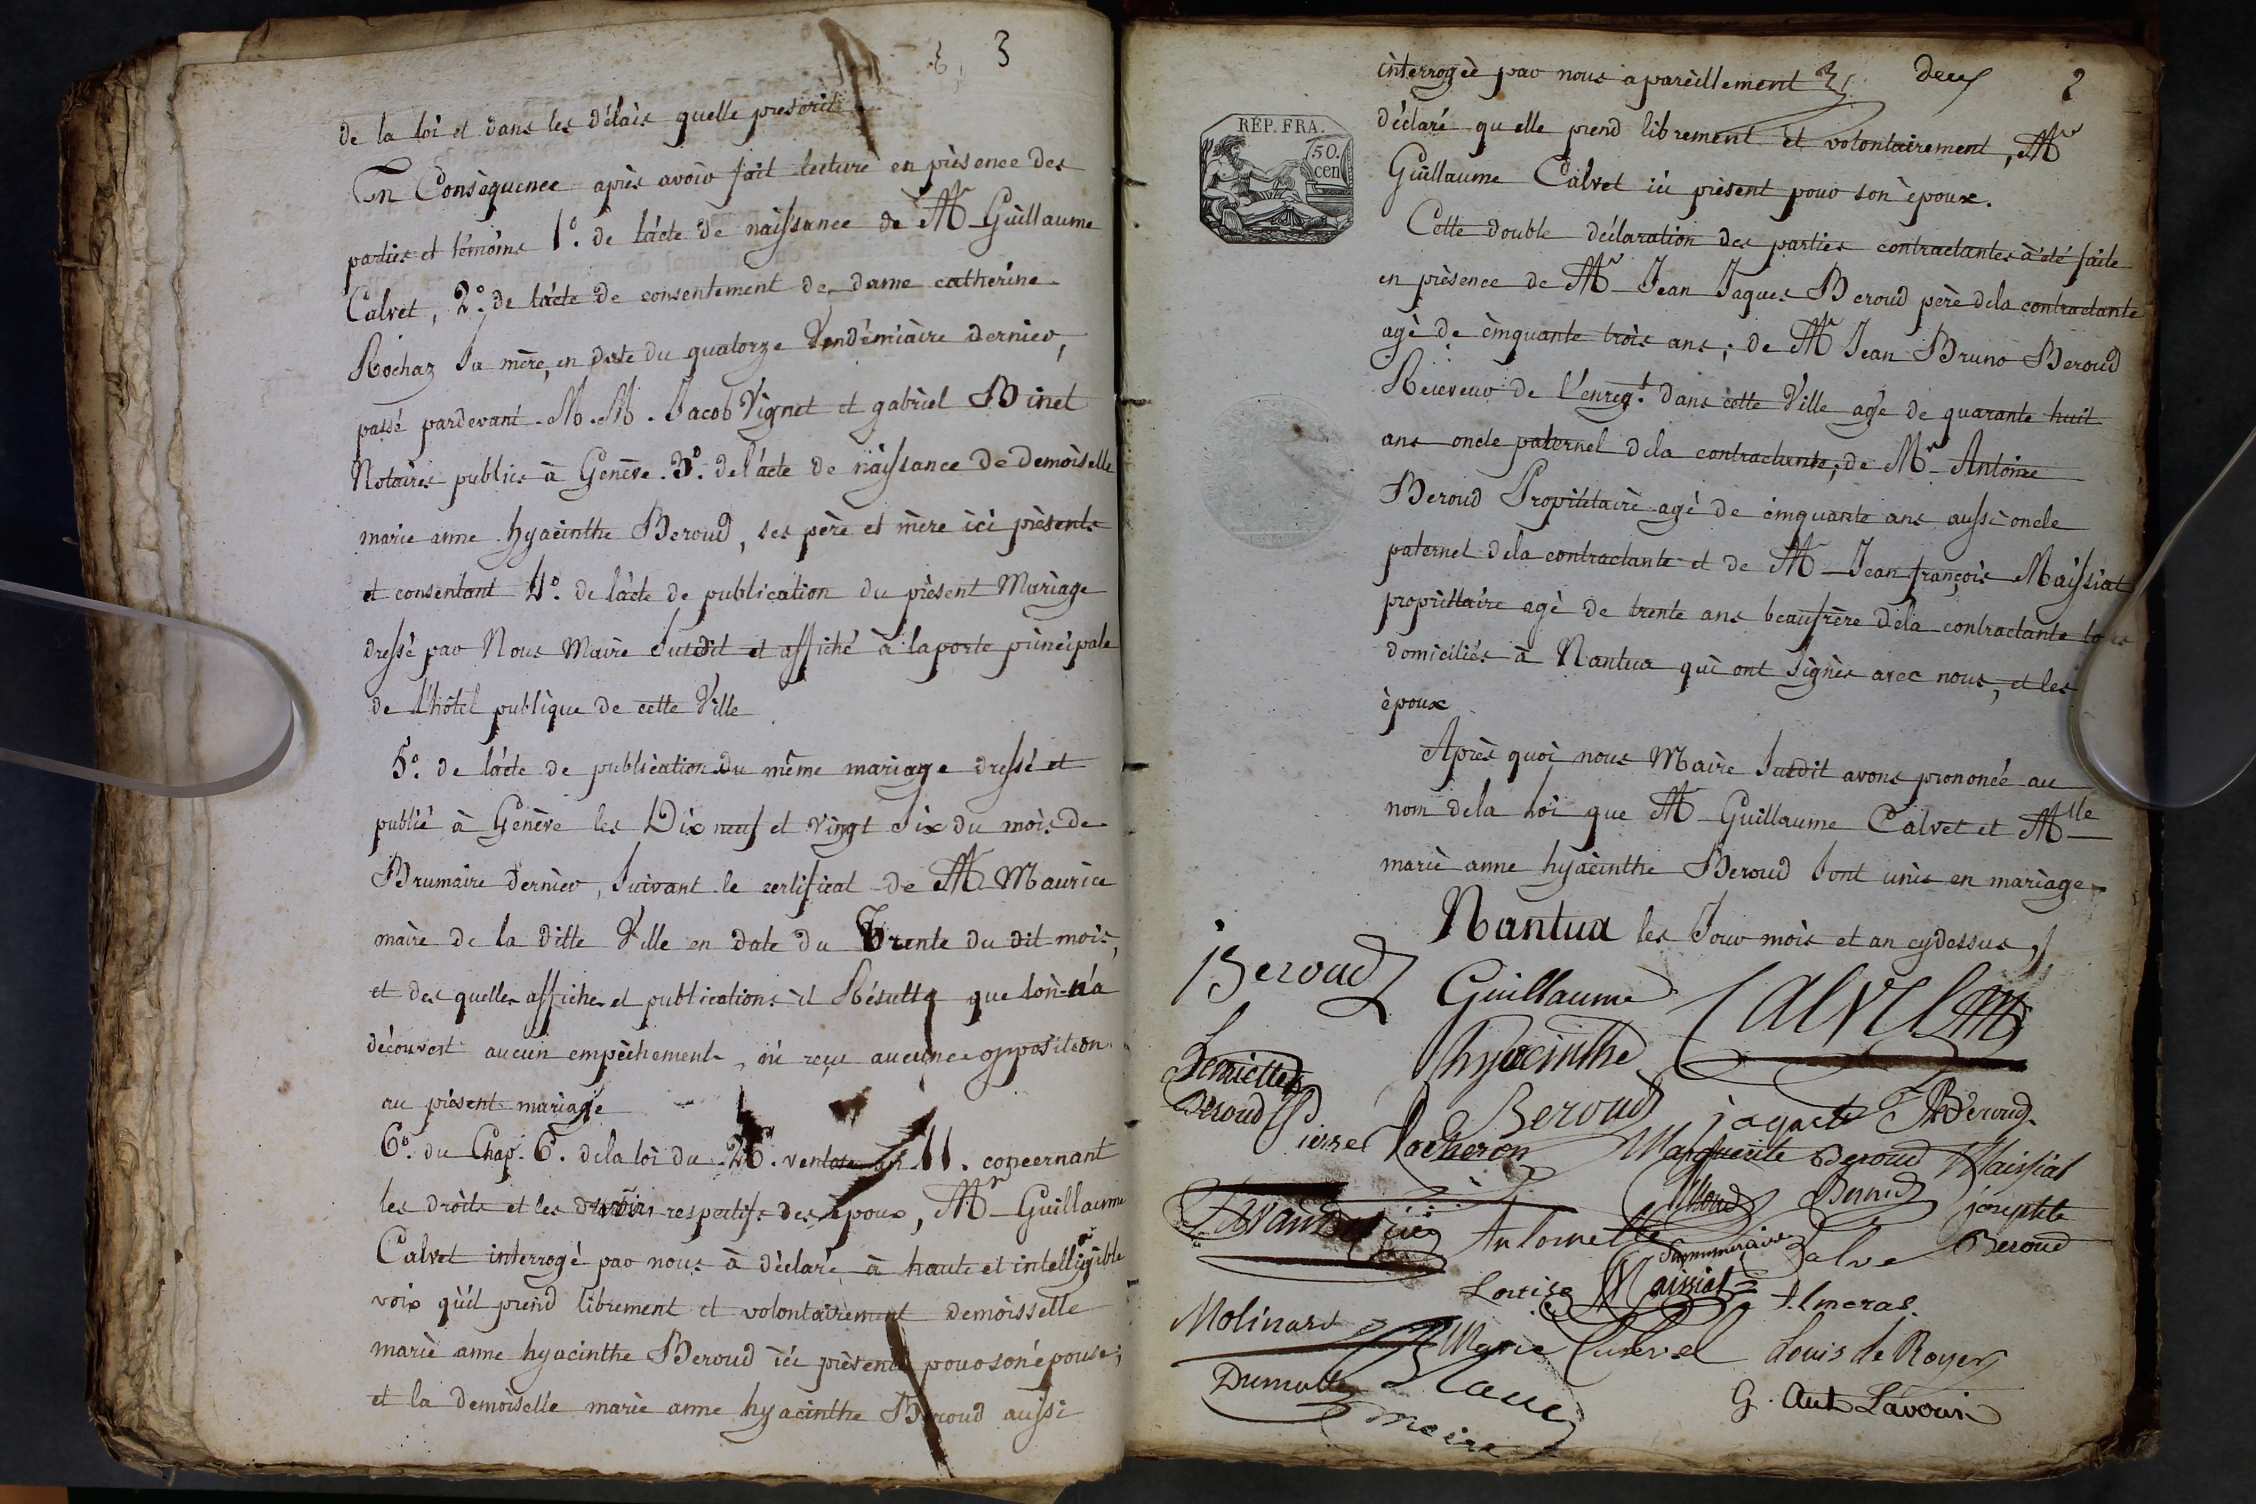 3
de la loi et dans les délais quelle prescrit
En Conséquence après avoir fait lecture en présence des
parties et témoins 1º. de lácte de naissance de Mr Guillaume
Calvet, 2º. de lácte de consentement de dame catherine
Rochaz Sa mère, en date du quatorze Vendémiaire dernier,
passé pardevant M. M. Jacob Vignet et gabriel Binet
Notaires publics à Genève. 3º. de l'acte de naissance de demoiselle
marie anne hyacinthe Beroud, ses père et mère ici présents
et consentant 4º. de lácte de publication du présent Mariage
dressé par Nous Maire Susdit et affiché à la porte principale
de l'hôtel publique de cette Ville
5º. de lácte de publication du même mariage dressé et
publié à Genève les Dix neuf et vingt Six du mois de
Brumaire dernier, Suivant le certificat de Mr Maurice
maire de la ditte Ville en date du Trente du dit mois,
et des quelles affiches et publications il Résulte que lòn n'a
découvert aucun empêchement, ni reçu aucune opposition
au présent mariage
6º. du Chap. 6. dela loi du 26. ventose an 11. concernant
les droits et les devoirs respectifs des époux, Mr Guillaume
Calvet interrogé par nous à déclaré à haute et intelligible
voix qu'il prend librement et volontairement demoisselle
marie anne hyacinthe Beroud ici présente pour son épouse;
et la demoiselle marie anne hyacinthe Beroud aussi
deux 2
interrogée par nous a pareillement
RÉP. FRA.
50.
cen
déclaré qu elle prend librement et volontairement, Mr
Guillaume Calvet ici présent pour son époux.
Cette double déclaration des parties contractantes à été faite
en présence de Mr Jean Jaques Beroud père dela contractante
agé de cinquante trois ans; de Mr Jean Bruno Beroud
Receveur de l'enregt. dans cette Ville agé de quarante huit
ans oncle paternel dela contractante; de Mr Antoine
Beroud Propriétaire agé de cinquante ans aussi oncle
paternel dela contractante et de Mr Jean françois Maissiat
propriétaire agé de trente ans beaufrère dela contractante tous
domiciliés à Nantua qui ont Signés avec nous, et les
époux
Après quoi nous Maire Susdit avons prononcé au
nom dela loi que Mr Guillaume Calvet et Mlle
marie anne hyacinthe Beroud Sont unis en mariage
Nantua les Jour mois et an cydessus
Beroud Guillaume Calvet
hyacinthe
Beroud
Beroud Pierre Beroud
Marguerite Beroud Maissiat
Antoinette josephte
Beroud
Louise Maissiat
Molinard
Marie Louis de Royer
Dumolle
G. Ant Lavoin
maire